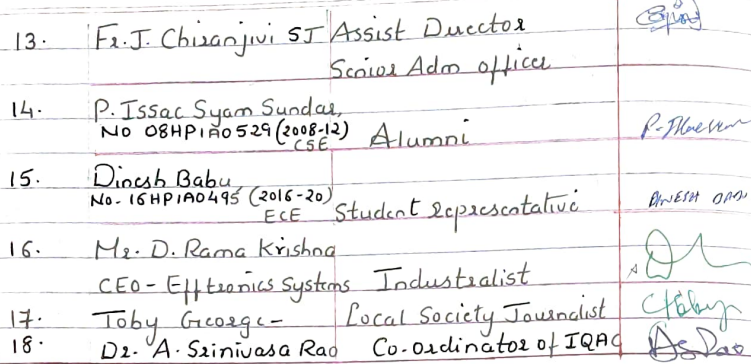 13. Fr. J. Chiranjivi SJ Assist Director
Senior Adm officer
14. P. Issac Syam Sundar,
No 08HP1A0529 (2008-12)
CSE Alumni
15. Dinesh Babu
No- 16HP1A0495 (2016-20)
ECE Student representative DINESH
16. Mr. D. Rama Krishna
CEO - Efftronics Systems Industrialist
17. Toby George - Local Society Journalist
18. Dr. A. Srinivasa Rao Co-ordinator of IQAC